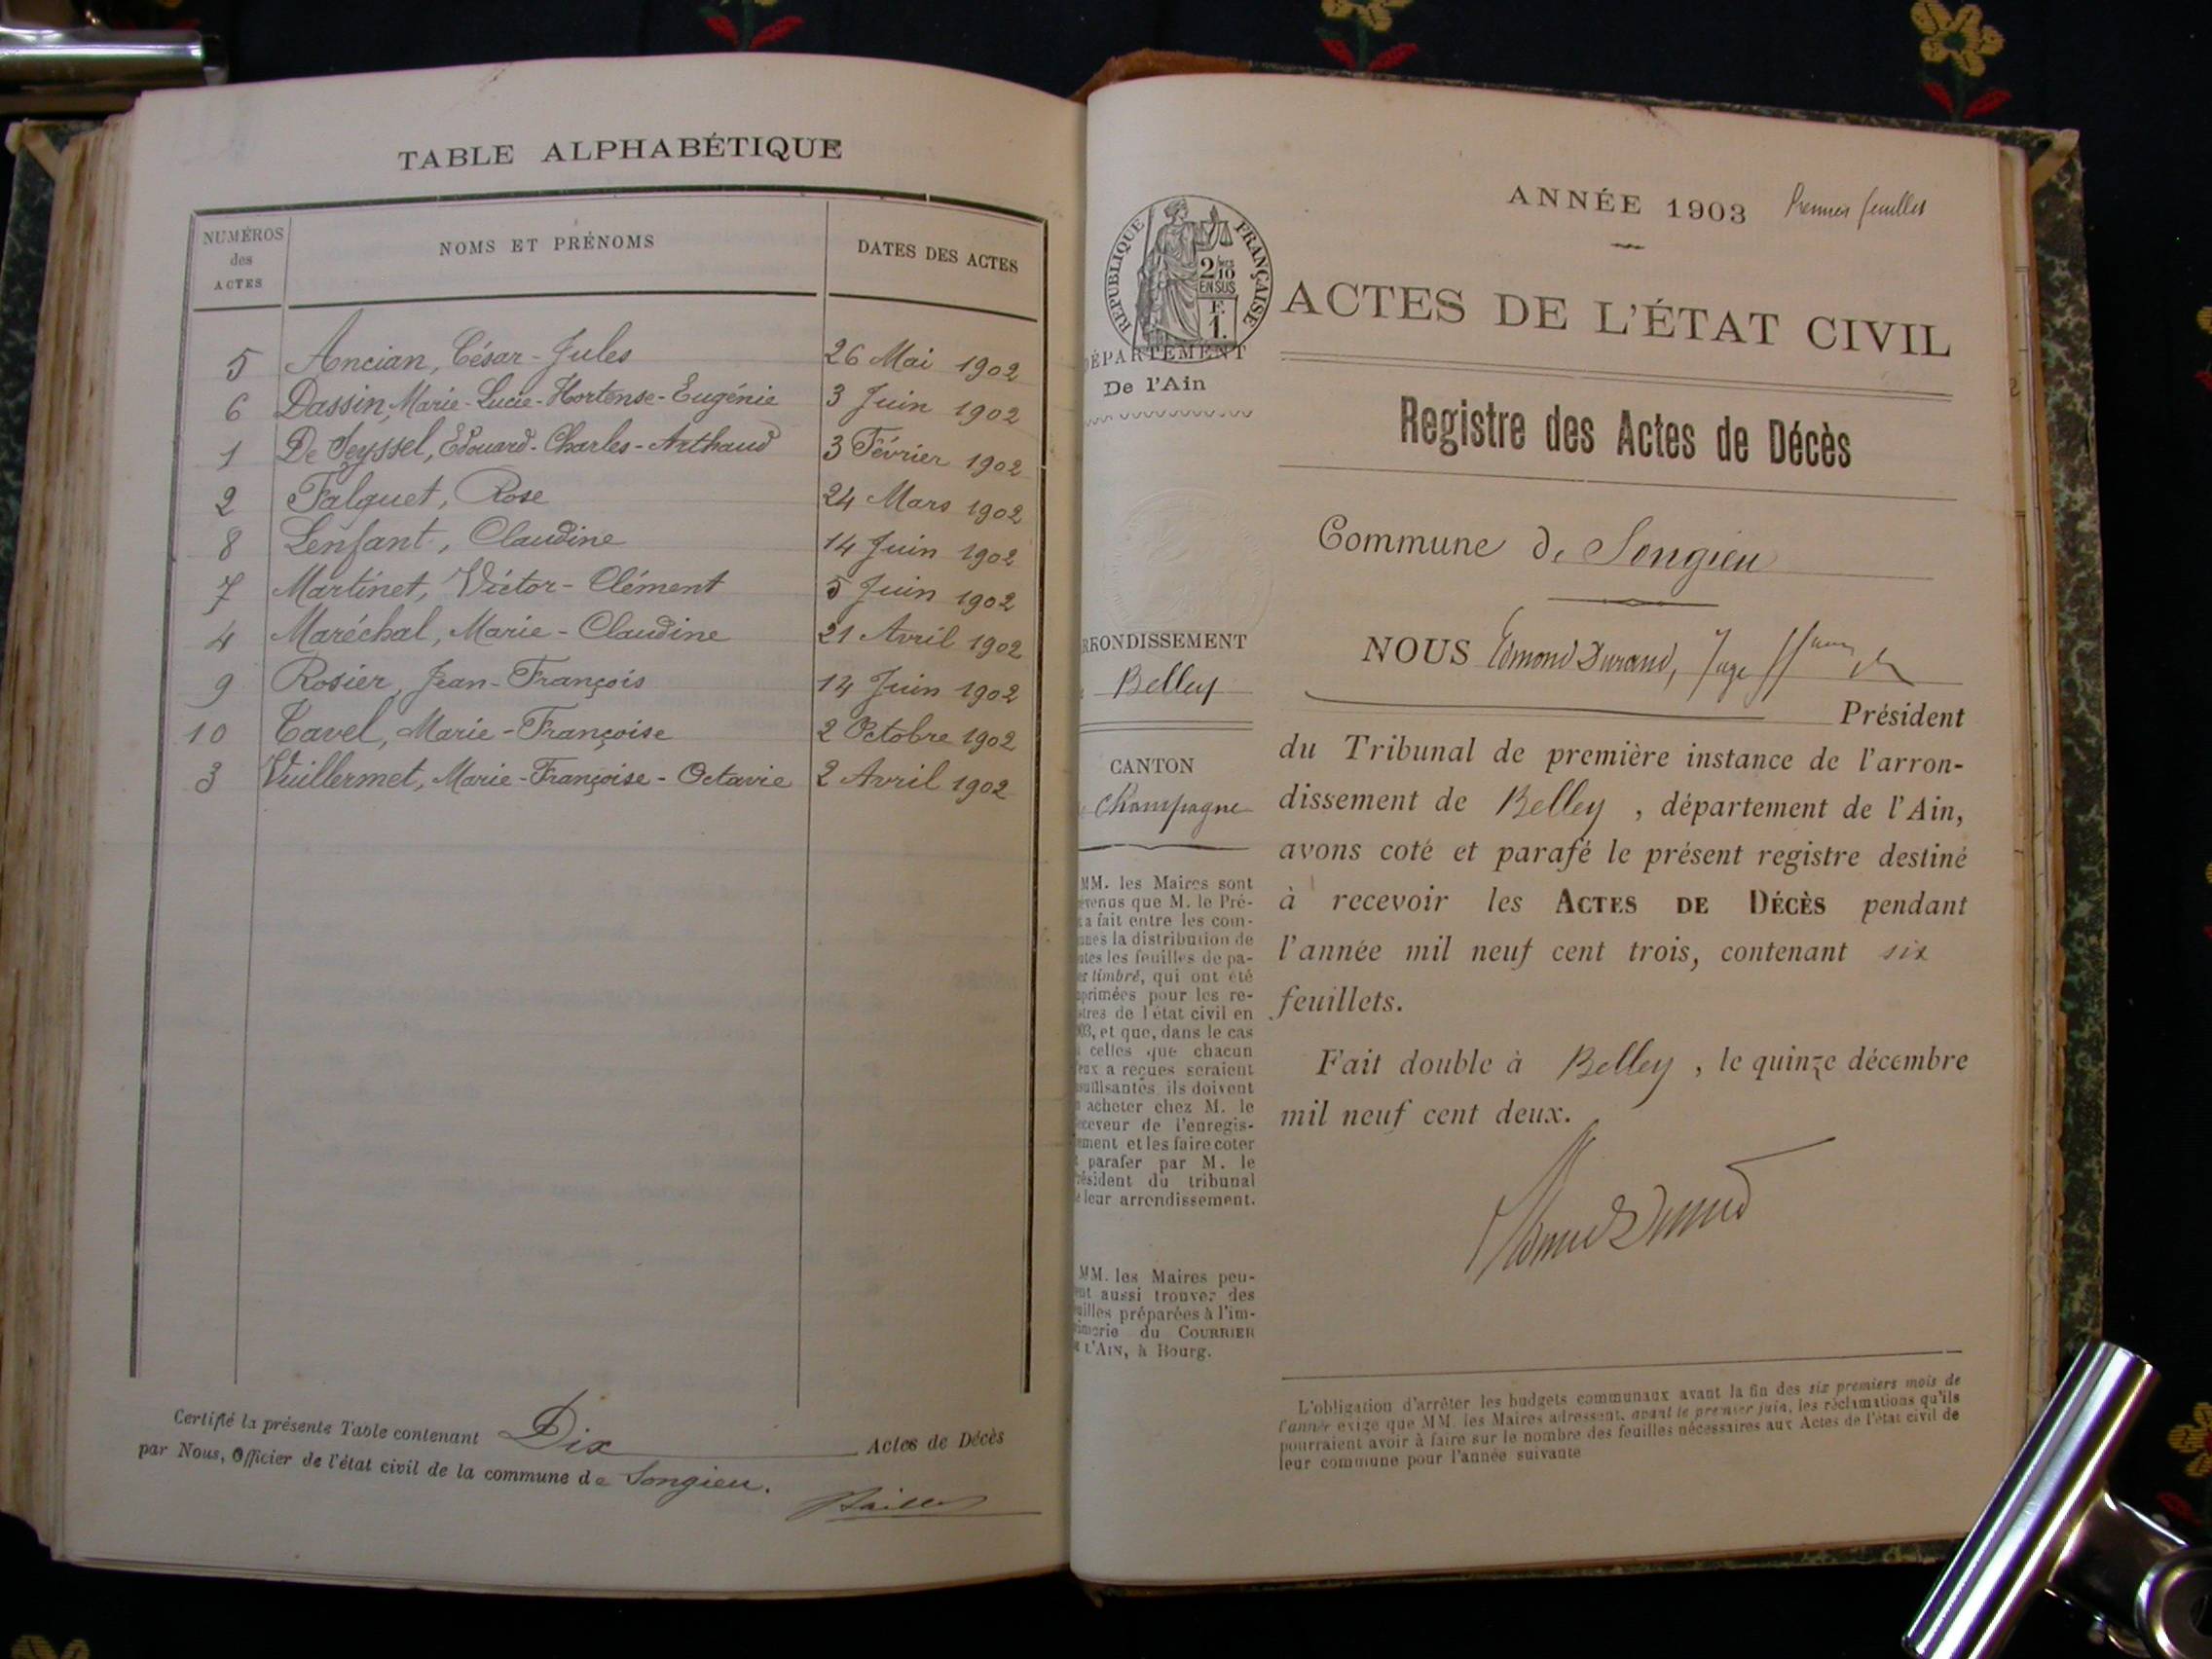 TABLE ALPHABÉTIQUE
NUMÉROS des ACTES
NOMS ET PRÉNOMS
DATES DES ACTES
5 Ancian, César-Jules 26 Mai 1902
6 Dassin, Marie-Lucie-Hortense-Eugénie 3 Juin 1902
1 De Seyssel, Edouard-Charles-Arthaud 3 Février 1902
2 Falquet, Rose 24 Mars 1902
8 Lenfant, Claudine 14 Juin 1902
7 Martinet, Victor-Clément 5 Juin 1902
4 Maréchal, Marie-Claudine 21 Avril 1902
9 Rosier, Jean-François 14 Juin 1902
10 Tavel, Marie-Françoise 2 Octobre 1902
3 Vuillermet, Marie-Françoise-Octavie 2 Avril 1902
Certifié la présente Table contenant Dix Actes de Décès
par Nous, Officier de l'état civil de la commune de Songieu.
ANNÉE 1903 Premier feuillet
RÉPUBLIQUE FRANÇAISE
2 10
EN SUS
F.
1.
ACTES DE L'ÉTAT CIVIL
DÉPARTEMENT
De l'Ain
Registre des Actes de Décès
Commune de Songieu
RRONDISSEMENT
Belley
CANTON
Champagne
MM. les Maires sont
evenus que M. le Pré-
t a fait entre les com-
unes la distribution de
utes les feuilles de pa-
er timbré, qui ont été
primées pour les re-
stres de l'état civil en
03, et que, dans le cas
celles que chacun
eux a reçues seraient
suffisantes, ils doivent
acheter chez M. le
eceveur de l'enregis-
ement et les faire coter
parafer par M. le
résident du tribunal
e leur arrondissement.
MM. les Maires peu-
ent aussi trouver des
uilles préparées à l'im-
imerie du COURRIER
L'AIN, à Bourg.
NOUS Edmond Durand, Juge
Président
du Tribunal de première instance de l'arron-
dissement de Belley, département de l'Ain,
avons coté et parafé le présent registre destiné
à recevoir les ACTES DE DÉCÈS pendant
l'année mil neuf cent trois, contenant six
feuillets.
Fait double à Belley, le quinze décembre
mil neuf cent deux.
L'obligation d'arrêter les budgets communaux avant la fin des six premiers mois de
l'année exige que MM. les Maires adressent, avant le premier juin, les réclamations qu'ils
pourraient avoir à faire sur le nombre des feuilles nécessaires aux Actes de l'état civil de
leur commune pour l'année suivante